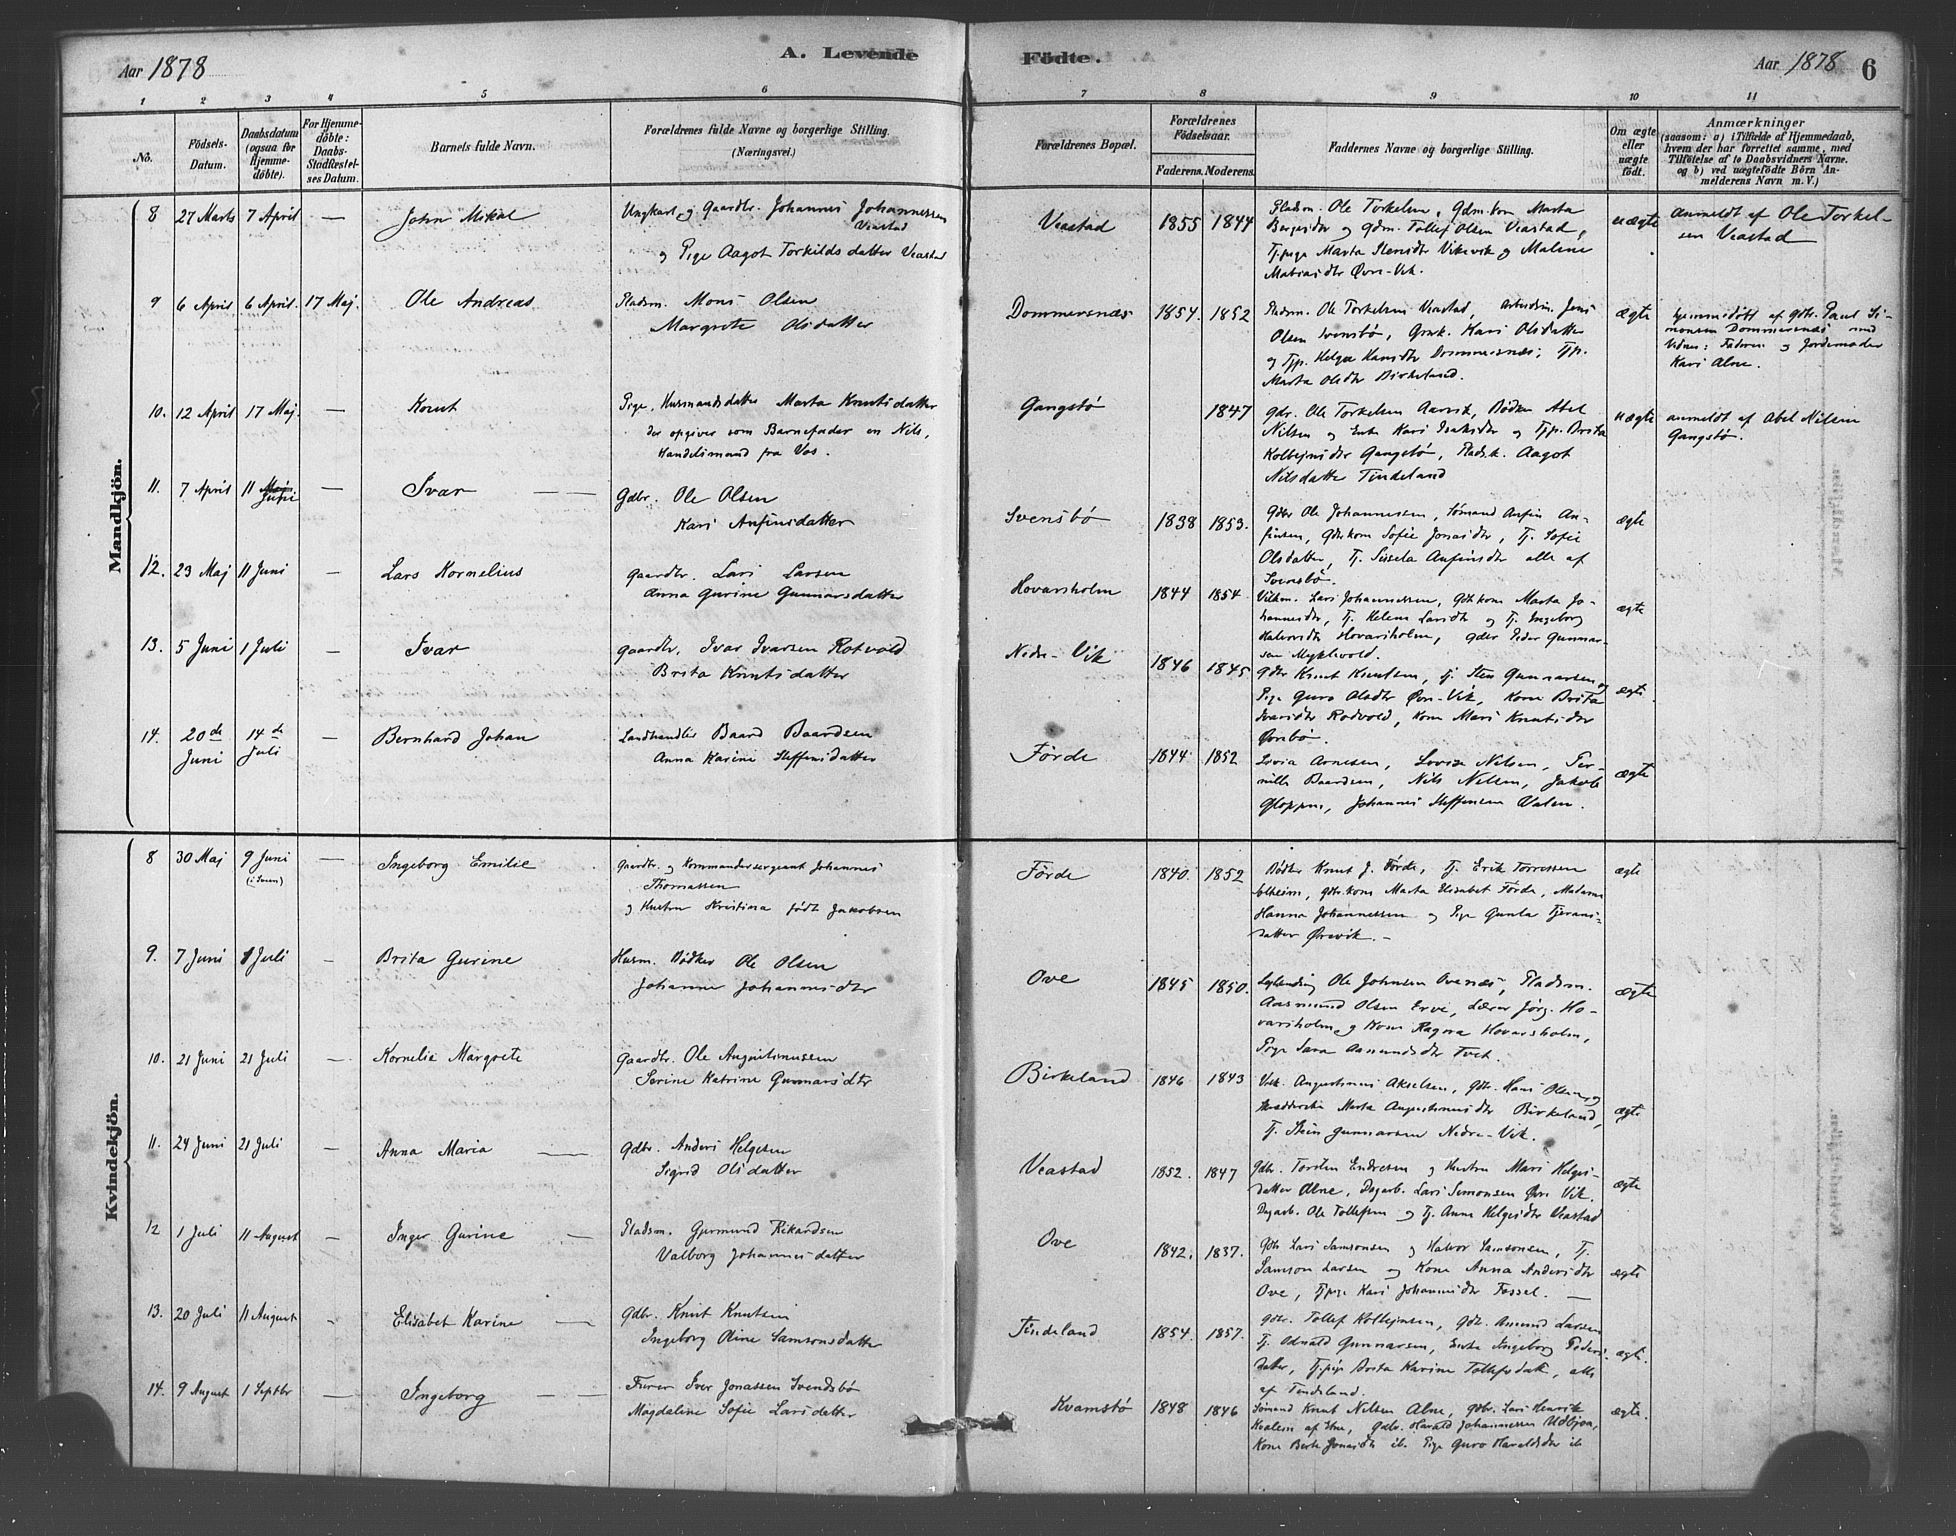 Aar 1878
A. Levende
Födte.
Aar 1878
6
1 2 3 4 5 6 7 8 9 10 11
No.
Födsels-
Datum.
Daabsdatum
(ogsaa for
Hjemme-
döbte).
For Hjemme-
döbte:
Daabs-
Stadfæstel-
ses Datum.
Barnets fulde Navn.
Forældrenes fulde Navne og borgerlige Stilling.
(Næringsvei.)
Forældrenes Bopæl.
Forældrenes
Födselsaar.
Faderens. Moderens.
Faddernes Navne og borgerlige Stilling.
Om ægte
eller
uægte
födt.
Anmærkninger
(saasom: a) i Tilfælde af Hjemmedaab,
hvem der har forrettet samme, med
Tilföielse af to Daabsvidners Navne.
og b) ved uægtefödte Börn An-
melderens Navn m. V.)
Mandkjön.
8 27 Marts 7 April — John Mikal
Ungkarl og Gaardbr. Johannes Johannessen
Veastad
og Pige Aagot Torkildsdatter Veastad
Veastad 1855 1844
Pladsm. Ole Torkelsen, Gdm.kone Marta
Bergesdtr og Gdm. Tollef Olsen Veastad,
Tj.pige Marta Stensdtr Vikevik og Malene
Matiasdtr Øvre-Vik.
uægte
Anmeldt af Ole Torkel-
sen Veastad
9 6 April 6 April. 17 Maj. Ole Andreas
Pladsm. Mons Olsen
Margrete Olsdatter
Dommersnæs 1854. 1852
Pladsm. Ole Torkelsen Veastad, Arbeidsm. Jens
Olsen Svensbø, Gmk. Kari Olsdatter
og Tjp. Helga Hansdtr Dommersnæs, Tjp.
Marta Olsdtr Birkeland.
ægte
hjemmedøbt af gbr. Paul Si-
monsen Dommersnæs med
Vidner: Faderen og Jordemoder
Kari Alne.
10. 12 April 17 Maj. — Knut
Pige, Husmandsdatter Marta Knutsdatter
der opgiver som Barnefader en Nils,
Handelsmand fra Vos.
Gangstø 1847
Gdr. Ole Torkelsen Aarvik, Bødker Abel
Nilsen og Enke Kari Isaksdtr og Tjp. Brita
Kolbejnsdtr Gangstø, Pladsk. Aagot
Nilsdatter Tindeland
uægte
anmeldt af Abel Nilsen
Gangstø.
11. 7 April 11 Juni — Ivar
Gdbr. Ole Olsen
Kari Anfinsdatter
Svensbø 1838 1853.
Gdbr Ole Johannessen, Sømand Anfin An-
finsen, Gbrkone Sofie Jonasdtr, Tj. Sofie
Olsdatter, Tj. Sissela Anfinsdtr alle af
Svensbø.
ægte
12. 23 Maj 11 Juni — Lars Kornelius
Gaardbr. Lars Larsen
Anna Gurine Gunnarsdatter
Hovarsholm 1844 1854.
Vilkm. Lars Johannessen, Gbrkone Marta Jo-
hannesdtr, Tj. Helene Larsdtr og Tj. Ingeborg
Halvorsdtr Hovarsholm, Gdbr Peder Gunnar-
sen Myklevold.
ægte
13. 5 Juni 1 Juli — Ivar
Gaardbr. Ivar Ivarsen Rotvold
Brita Knutsdatter
Nedre-Vik 1846 1845
Gdbr Knut Knutsen, Tj. Sten Gunnarsen og
Pige Guro Olsdtr Øvre-Vik, Kone Brita
Ivarsdtr Rodvold, Kone Mari Knutsdtr
Ørebø.
ægte.
14. 20de Juni 14de Juli — Bernhard Johan
Landhandler Baard Baardsen
Anna Karine Steffensdatter
Førde 1844 1852
Lovia Arnesen, Lovise Nilsen, Per-
nille Baardsen, Nils Nilsen, Jakob
Gloppen, Johannes Steffensen Valen.
ægte
Kvindekjön.
8 30 Maj 9 Juni — Ingeborg Emilie
(i Sveen)
Gaardbr. og Kommandersergeant Johannes
Thomassen
og Hustru Kristina født Jakobsen
Førde 1840. 1852
Bødker Knut J. Førde, Tj. Erik Torressen
Solheim, gbrkone Marta Elisabet Førde, Madame
Hanna Johannessen og Pige Gunla Tjerans-
datter Ørevik. —
ægte
9. 7 Juni 1 Juli — Brita Gurine
Husm. Bødker Ole Olsen
Johanne Johannesdtr
Ove 1845 1850.
Lægdslding Ole Johnsen Ovenæs, Pladsm.
Aasmund Olsen Erve, Lærer Jørg. Ho-
varsholm og Kone Ragna Hovarsholm,
Pige Sara Aamundsdtr Tvet.
ægte
10. 21 Juni 21 Juli — Kornelia Margrete
Gaardbr. Ole Augustinussen
Serine Katrine Gunnarsdtr
Birkeland 1846 1843
Vilk. Augustinus Akselsen, Gbr. Hans Olsen, og
Marta Augustinusdtr Birkeland,
Tj. Stein Gunnarsen Nedre-Vik.
ægte
11. 24 Juni 21 Juli — Anna Maria
Gdbr. Anders Helgesen
Sigrid Olsdatter
Veastad 1852. 1847
Gdbr. Torsten Endresen og Hustru Mari Helges-
datter Alne, Dagarb. Lars Simonsen Øvre Vik.
Dagarb. Ole Tollefsen og Tj. Anna Helgesdtr Veastad
ægte
12 1 Juli 11 August — Inger Gurine
Pladsm. Gjermund Rikardsen
Valborg Johannesdatter
Ove 1842. 1837.
Gbr Lars Samsonsen og Halvor Samsonsen, Tj.
Samson Larsen og Kone Anna Andersdtr
Ove, Tjpige Kari Johannesdtr Fossel. —
ægte
13. 20 Juli 11 August - Elisabet Karine
Gdbr. Knut Knutsen
Ingeborg Oline Samsonsdatter
Tindeland 1854. 1857.
Gdbr. Tollef Kolbejnsen, Gdr. Amund Larsen
Tj. Odvald Gunnarsen, Enke Ingeborg Peders-
datter, Tjpige Brita Karine Tollefsdatr, alle
af Tindeland.
ægte.
14. 9 August 1 Septbr — Ingeborg
Furer Iver Jonassen Svendsbø
Magdaline Sofie Larsdatter
Kvamstø 1848 1846
Sømand Knut Nilsen Alne, gdbr. Lars Henrik
Kvalen af Etne, Gdbr. Harald Johannessen Udbjoa,
Kone Berte Jonasdtr ib. Pige Guro Haraldsdtr ib
ægte.